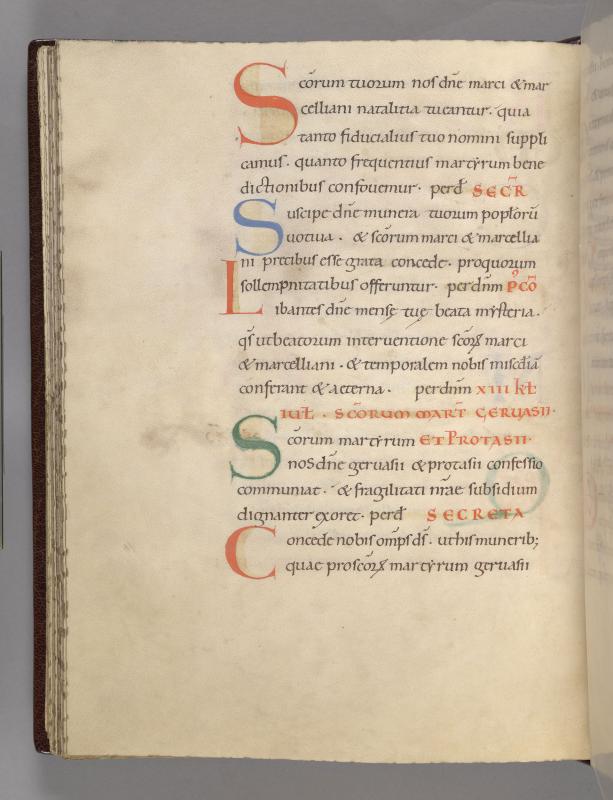 Scōrum tuorum nos dñe marci & mar
celliani natalitia tueantur. quia
tanto fiducialius tuo nomini suppli
camus. quanto frequentius martyrum bene
dictionibus confouemur. perd̄ SECR̄
Suscipe dñe munera tuorum poplorū
uotiua. & scōrum marci & marcellia
ni precibus esse grata concede. proquorum
sollempnitatibus offeruntur. perdnm̄ PꝰCŌ
Libantes dñe mensę tuę beata mysteria.
qs̄ utbeatorum interuentione scōrꝝ marci
& marcelliani. & temporalem nobis miscd̄iā
conferant & aeterna. perdnm̄ XIII KL̄
IUL̄. SCŌRUM MART̄ GERUASII.
Scōrum martyrum ET PROTASII.
nos dñe geruasii & protasii confessio
communiat. & fragilitati nrāe subsidium
dignanter exoret. perd̄ SECRETA
Concede nobis omp̄s ds̄. uthismunerib;
quae proscōrꝝ martyrum geruasii